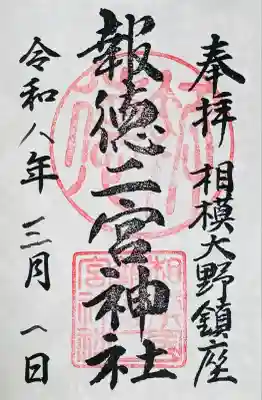 奉拝 相模大野鎮座
報徳二宮神社
令和八年 三月 一日